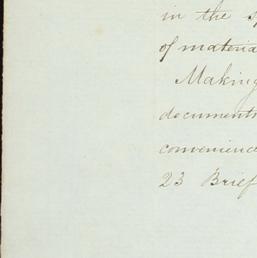 in the sp
of materia
Making
documents
convenienc
23 Brief